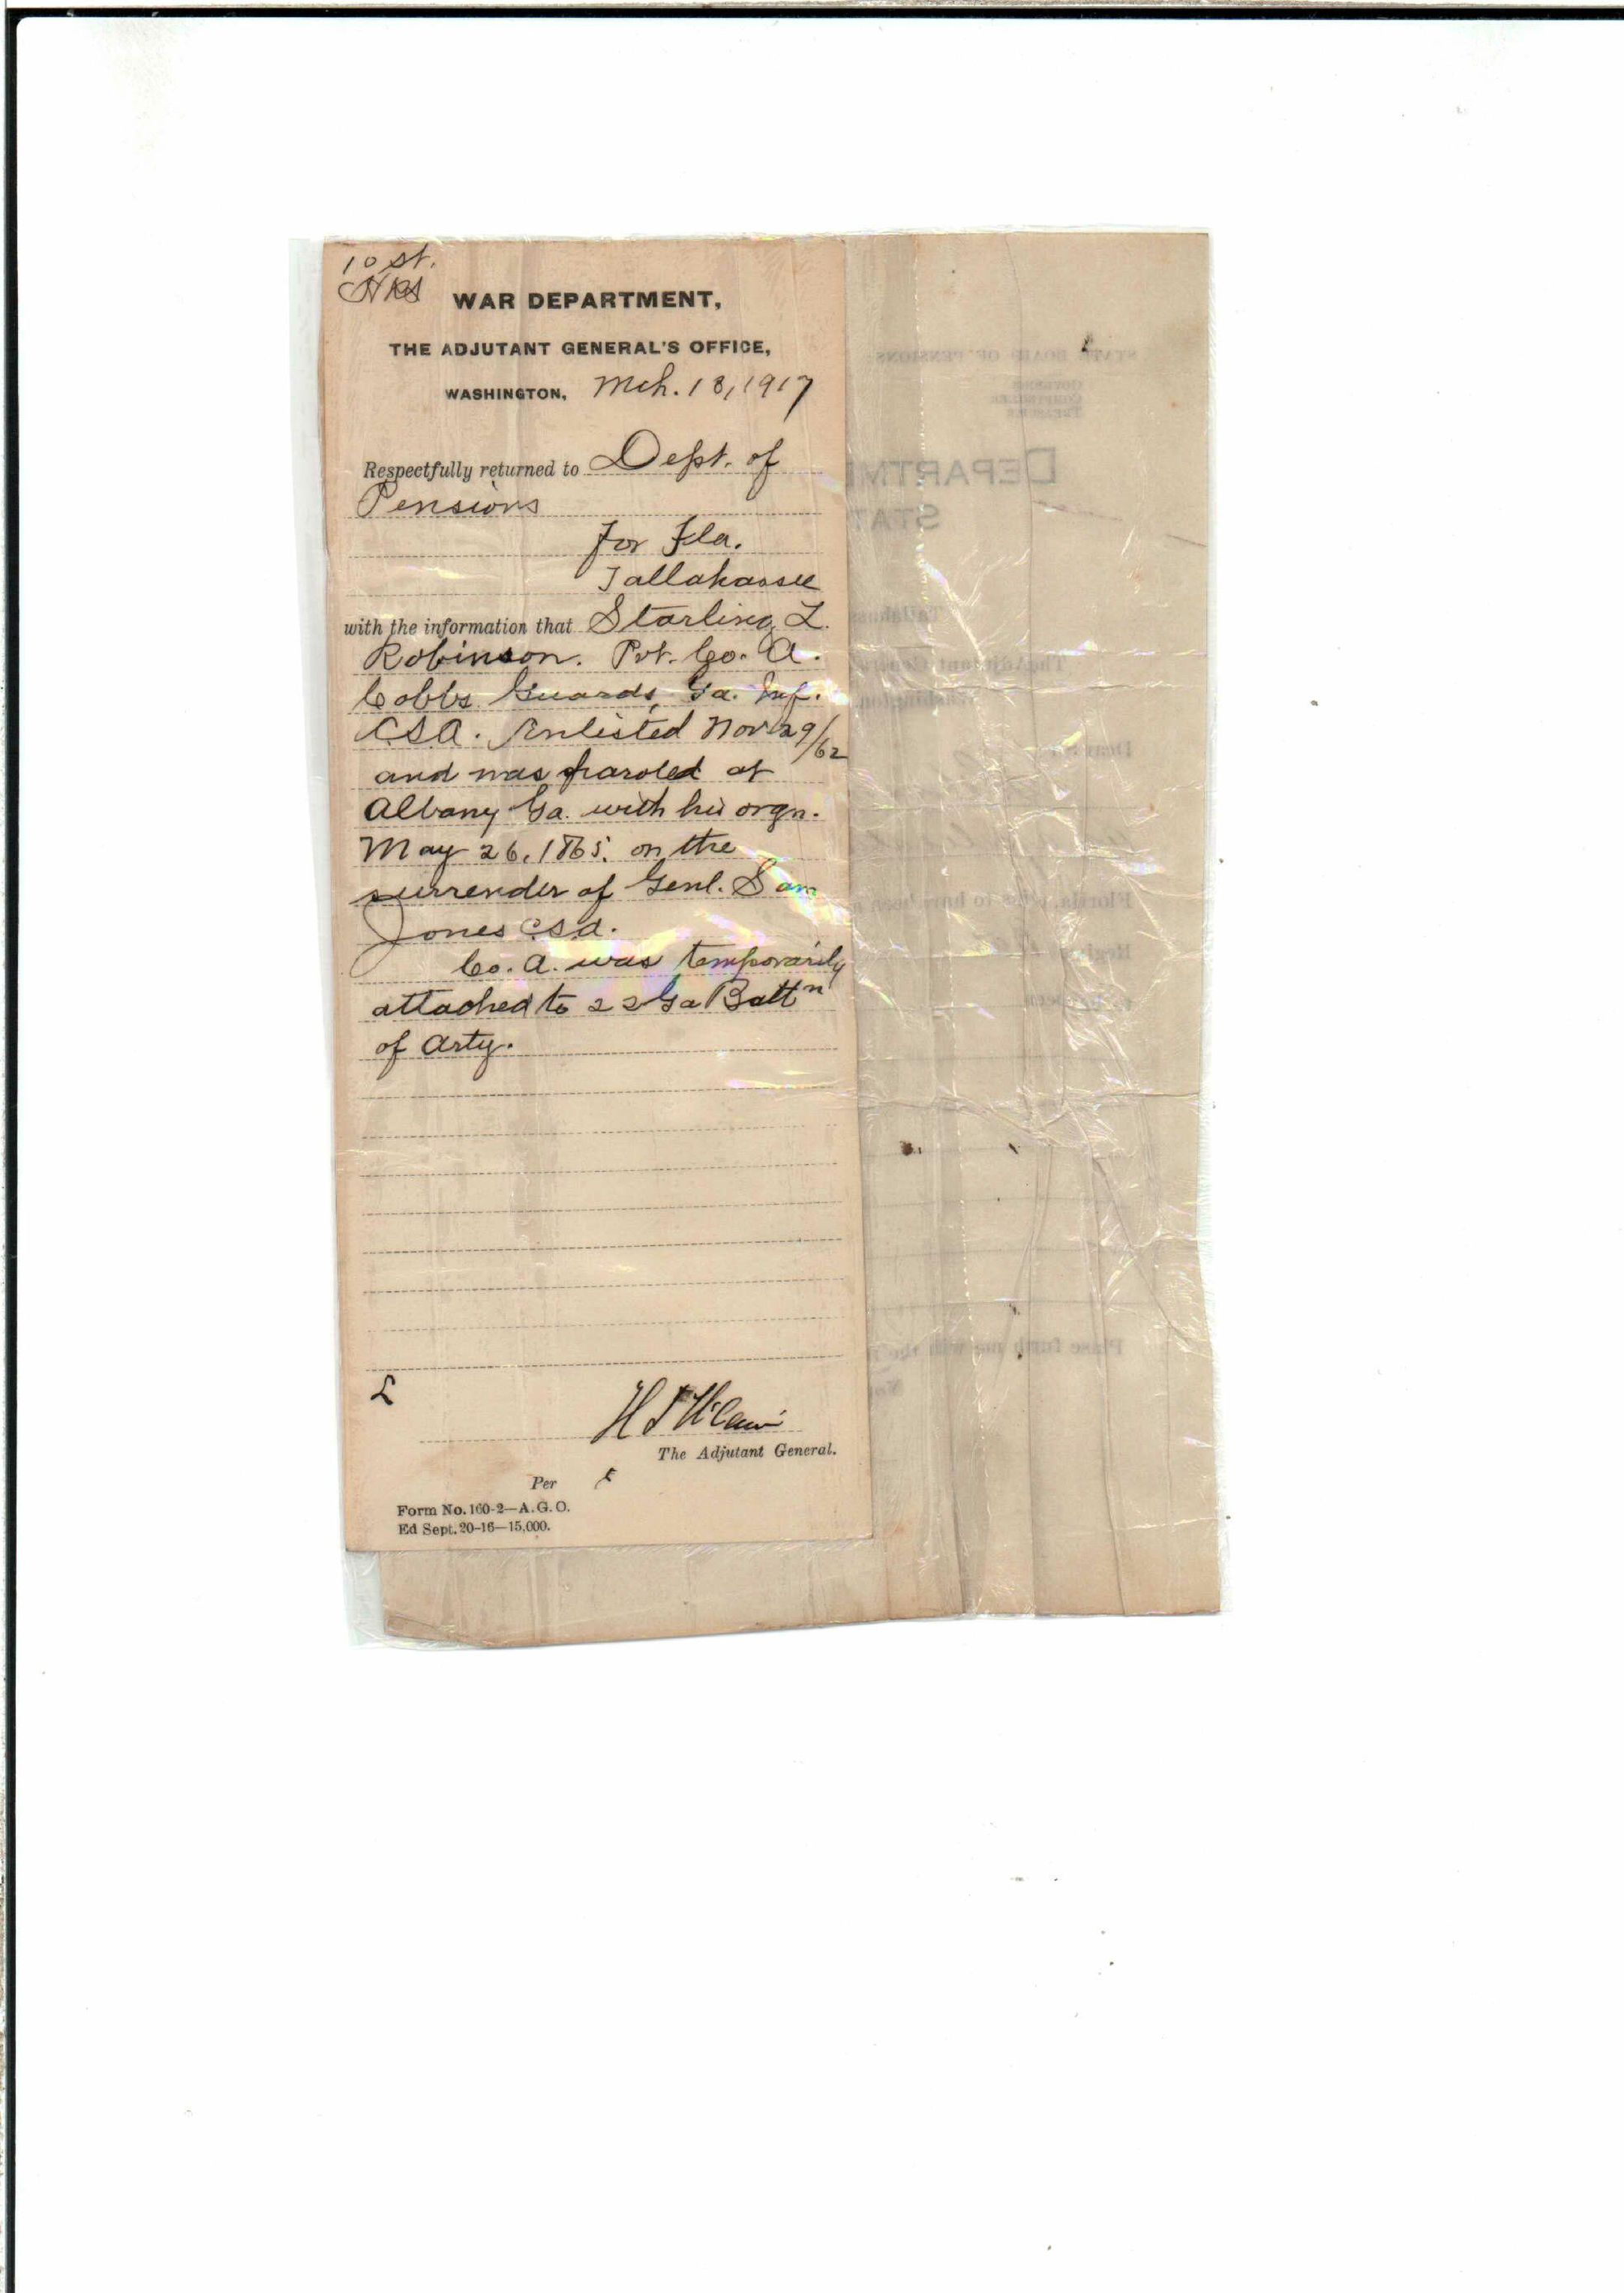 10 St.
WAR DEPARTMENT,
THE ADJUTANT GENERAL'S OFFICE,
WASHINGTON, Mch. 18, 1917
Respectfully returned to Dept. of
Pensions
for Fla.
Tallahassee
with the information that Starling L.
Robinson. Pvt. Co. A.
Cobbs Guards, Ga. Inf.
C.S.A. Enlisted Nov 29/62
and was paroled at
Albany Ga. with his orgn.
May 26, 1865, on the
surrender of Genl. Sam
Jones C.S.A.
Co. A. was temporarily
attached to 22 Ga Battn
of Arty.
The Adjutant General.
Per
Form No. 160-2—A.G.O.
Ed Sept. 20-16—15,000.
STATE BOARD OF PENSIONS:
GOVERNOR
COMPTROLLER
TREASURER
DEPARTME
STAT
Tallahass
The Adjutant General
Washington
Dear
Florida, to have been
Please furnish me with the